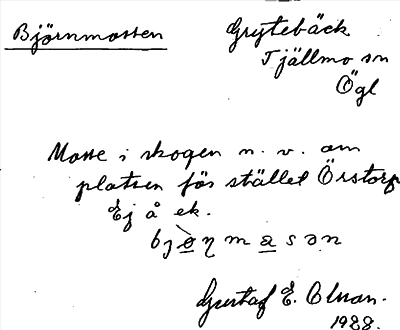 Björnmossen
Grytebäck
Tjällmo sn
Ögl
Mosse i skogen n. v. om
platsen för stället Örstorp
Ej å ek.
bjèŋmasən
Gustaf E. Olsson.
1928.